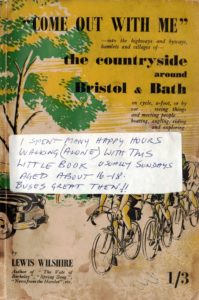 "COME OUT WITH ME"
—into the highways and byways,
hamlets and villages of—
the countryside
around
Bristol & Bath
on cycle, a-foot, or by
car seeing things
and meeting people
boating, angling, riding
and exploring.
I SPENT MANY HAPPY HOURS
WALKING (ALONE) WITH THIS
LITTLE BOOK USUALLY SUNDAYS
AGED ABOUT 16-18.
BUSES GREAT THEN!!
by
LEWIS WILSHIRE
Author of "The Vale of
Berkeley", "Spring Song",
"News from the Hamlet", etc.
1/3